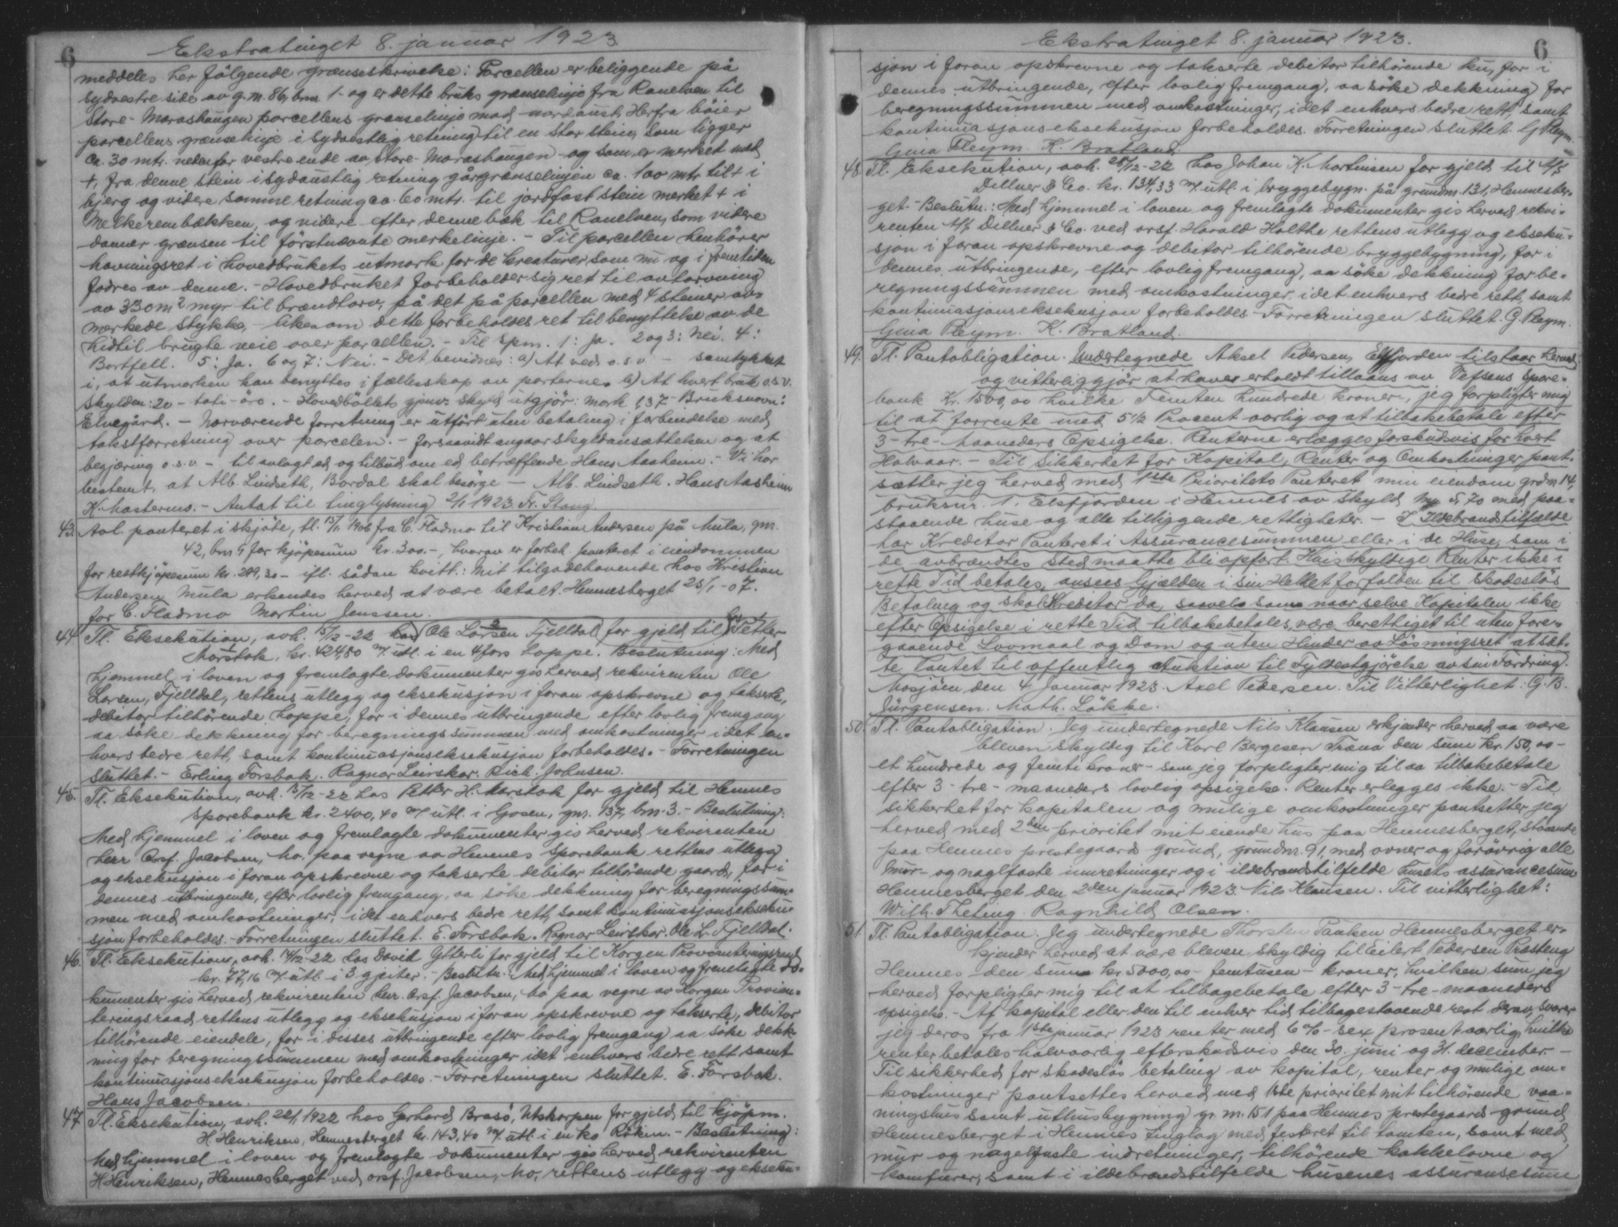 6
Ekstratinget 8. januar 1923
meddeles her følgende grænseskrivelse: Parcellen er beliggende på
sydvestre side av g.m. 86, brm 1. og er dette bruks grænselinje fra Ranelven til
Store-Morashaugen parcellens grænselinje mod nordaust. Herfra bøier
parcellens grænselinje i sydvestlig retning til en stor stein, som ligger
ca. 30 mtr. nedenfor vestre ende av Store-Morashaugen og som er merket med
+, fra denne stein i sydaustlig retning går grænselinjen ca. 100 mtr. til + i
bjerg og videre samme retning ca 60 mtr. til jordfast stein merket + i
bækken, og videre efter denne bæk til Ranelven, som videre
danner grænsen til förstnævnte merkelinje. - Til parcellen henhører
havningsret i hovedbrukets utmark for de kreaturer, som nu og i fremtiden
fødres av denne. - Hovedbruket forbeholder sig ret til avtorvning
av 330 m² myr til brændtorv, på det på parcellen med 4 steiner av-
merkede stykke, likesom dette forbeholdes ret til benyttelse av de
hidtil brugte veie over parcellen. - Til spm. 1: Ja. 2 og 3: Nei. 4:
Bortfell. 5: Ja. 6 og 7: Nei. - Det bevidnes: a) At ved o.s.v. - samtykket
i, at utmarken kan benyttes i fællesskap av parterne b) At hvert bruk o.s.v.
Skylden: 20 - toti - øre. - Hovedbøllets gjenv. skyld utgjør: mark 1.37. Bruksnavn:
Elvegård. - Nærværende forretning er utført uten betaling i forbindelse med
takstforretning over parcelen. - Forsaavidt angaar skyldansættelsen og at
begjæring o.s.v. - til avlagt ed og tilbud om ed betræffende Hans Aasheim. - Vi har
bestemt, at Alb. Lindseth, Bardal skal besørge - Alb. Lindseth. Hans Aasheim
K. Masterno. - Antat til tinglysning 2/1 1923. Fr. Stang.
43. Avl. panteret i skjøte, tl. 1906 fra C. Fladmo til Kristian Andersen på Mula, gm.
42, bm 9 for kjøpesum kr. 300.-, hvorav er forbeh. panteret i eiendommen
for restkjøpesum kr. 299,30 - ifl. sådan kvitt.: Mit tilgodehavende hos Kristian
Andersen Mula erkendes herved at være betalt. Hemnesberget 25/1-07.
for C. Fladmo Martin Jenssen.
44. Tl. Eksekution, avh. /12-22 hos Ole Larsen Fjelldal for gjeld til Petter
Morsbak, kr. 424,80 m/ utl. i en 4 fors hoppe. Beslutning: Med
hjemmel i loven og fremlagte dokumenter gis herved rekvirenten Ole
Larsen, Fjelldal, rettens utlegg og eksekusjon i foran opskrevne og takserte,
debitor tilhørende hoppe, for i dennes utbringende efter lovlig fremgang
aa søke dekkning for beregningssummen med omkostninger idet en-
hvers bedre rett, samt kontinuasjonseksekusjon forbeholdes. - Forretningen
sluttet. - Erling Forsbak. Ragnar Leirskar. Rich. Johnsen.
45. Tl. Eksekution, avh. /12-22 hos Petter H. for gjeld til Hemnes
Sparebank kr. 2400,40 m/ utl. i Gosen, gm. 137, bm. 3. - Beslutning:
Med hjemmel i loven og fremlagte dokumenter gis herved rekvirenten
herr Orsf. Jacobsen, Mo. paa vegne av Hemnes Sparebank rettens utlegg
og eksekusjon i foran opskrevne og takserte debitor tilhørende gaard, for i
dennes utbringende, efter lovlig fremgang, aa søke dekkning for beregningssum-
men med omkostninger, idet enhvers bedre rett, samt kontinuasjonsekseku-
sjon forbeholdes. - Forretningen sluttet. E. Forsbak. Ragnar Leirskar. Ole L. Fjelldal.
46. Tl. Eksekution, avh. /12-22 hos David Ytterli for gjeld til Korgen Provianteringsraad
kr. 77,16 m/ utl. i 3 geiter. Beslutn.: Med hjemmel i loven og fremlagte do-
kumenter gis herved rekvirenten herr Orsf. Jacobsen, Mo paa vegne av Korgen Provian-
teringsraad, rettens utlegg og eksekusjon i foran opskrevne og takserte, debitor
tilhørende eiendele, for i disses utbringende efter lovlig fremgang aa søke dekk-
ning for beregningssummen med omkostninger idet enhvers bedre rett samt
kontinuasjonseksekusjon forbeholdes. - Forretningen sluttet. E. Forsbak.
Hans Jacobsen.
47. Tl. Eksekution, avh. 1922 hos Gerhard Brasø, Utskarpen for gjeld til kjøpm.
H. Henriksen, Hemnesberget kr. 143,40 m/ utl. i en ko Rökm. - Beslutning:
Med hjemmel i loven og fremlagte dokumenter gis herved rekvirenten
H. Henriksen, Hemnesberget ved orsf. Jacobsen, Mo, rettens utlegg og ekseku-
Ekstratinget 8. januar 1923.
6
sjon i foran opskrevne og takserte debitor tilhørende ku, for i
dennes utbringende, efter lovlig fremgang, aa søke dekkning for
beregningssummen med omkostninger, idet enhvers bedre rett, samt
kontinuasjonseksekusjon forbeholdes. Forretningen sluttet. G. Pleym
Gina Pleym. K. Bratland.
48. Tl. Eksekution, avh. /12-22 hos Johan K. Mortinsen for gjeld til A/S
Dillner & Co. kr. 134,33 m/ utl. i bryggebygn. på grundm. 131, Hemnesber-
get. - Beslutn.: Med hjemmel i loven og fremlagte dokumenter gis herved rekvi-
renten A/S Dillner & Co. ved orsf. Harald Holthe rettens utlegg og ekseku-
sjon i foran opskrevne og debitor tilhørende bryggebygning, for i
dennes utbringende, efter lovlig fremgang, aa søke dekkning for be-
regningssummen med omkostninger, idet enhvers bedre rett, samt
kontinuasjonseksekusjon forbeholdes. - Forretningen sluttet. G. Pleym.
Gina Pleym. K. Bratland.
49. Tl. Pantobligation. Undertegnede Aksel Pedersen, Elsfjorden tilstaar herved
og vitterliggjør at have erholdt tillaans av Vefsens Spare-
bank Kr. 1500,00 hvilke Femten hundrede kroner, jeg forpligter mig
til at forrente med 5 1/2 Procent aarlig og at tilbakebetale efter
3 - tre - Maaneders Opsigelse. Renterne erlægges forskudsvis for hvert
Halvaar. - Til Sikkerhet for Kapital, Renter og Omkostninger pant-
sætter jeg herved med 1ste Prioritets Panteret min eiendom grdm 14,
bruksnr. 1. Elsfjorden i Hemnes av skyld Mk. 5,70 med paa-
staaende huse og alle tilliggende rettigheter. - I Ildebrandstilfælde
har Kreditor Panteret i Assurancesummen eller i de Huse, som i
de avbrændtes Sted maatte bli opført. Hvis skyldige Renter ikke i
rette Tid betales, ansees Gjælden i sin Helhet forfalden til skadesløs
Betaling og skal Kreditor da, saavel som naar selve Kapitalen ikke
efter Opsigelse i rette Tid tilbakebetales, være berettiget til uten fore-
gaaende Lovmaal og Dom og uten Hinder av Løsningsret at sæt-
te Pantet til offentlig Auktion til Fyldestgjørelse av sin Fordring.
Mosjøen, den 4 Januar 1923. Axel Pedersen. Til Vitterlighet: G.B.
Jürgensen. Math. Løkke.
50. Tl. Pantobligation. Jeg undertegnede Nils Klausen erkjender herved aa være
bleven skyldig til Karl Bergesen Træna den sum kr. 150,00 -
et hundrede og femti kroner - som jeg forpligter mig til aa tilbakebetale
efter 3 - tre - maaneders lovlig opsigelse. Renter erlegges ikke. - Til
sikkerhet for kapitalen og mulige omkostninger pantsetter jeg
herved med 2den prioritet mit eiende hus paa Hemnesberget, staaende
paa Hemnes prestegaards grund, grundnr. 91, med ovner og forøvrig alle
mur- og naglfaste innretninger og i ildebrandstilfelde husets assurancesum
Hemnesberget den 2den januar 1923. Nils Klausen. Til vitterlighet:
Wilh. Theting. Ragnhild Olsen.
51. Tl. Pantobligation. Jeg undertegnede Thorsten Paulsen Hemnesberget er-
kjender herved at være bleven skyldig til Eilert Pedersen Prasteng
Hemnes den summ kr. 5000,00 - femtusen - kroner, hvilken sum jeg
herved forpligter mig til at tilbagebetale efter 3 - tre - maaneders
opsigelse. - Af kapital eller den til enhver tid tilbagestaaende rest derav, svarer
jeg derav fra 1ste januar 1923 renter med 6 % - sex prosent aarlig, hvilke
renter betales halvaarlig efterskudsvis den 30. juni og 31. december. -
Til sikkerhed for skadesløs betaling av kapital, renter og mulige om-
kostninger pantsettes herved med 1ste prioritet mit tilhørende vaa-
ningshus samt uthusbygning gr. nr. 151 paa Hemnes prestegaards grund
Hemnesberget i Hemnes tinglag med festeret til tomten, samt med
mur og nagelfaste indretninger, tilhørende kakkelovne og
komfurer, samt i ildebrandstilfelde husenes assurancesum